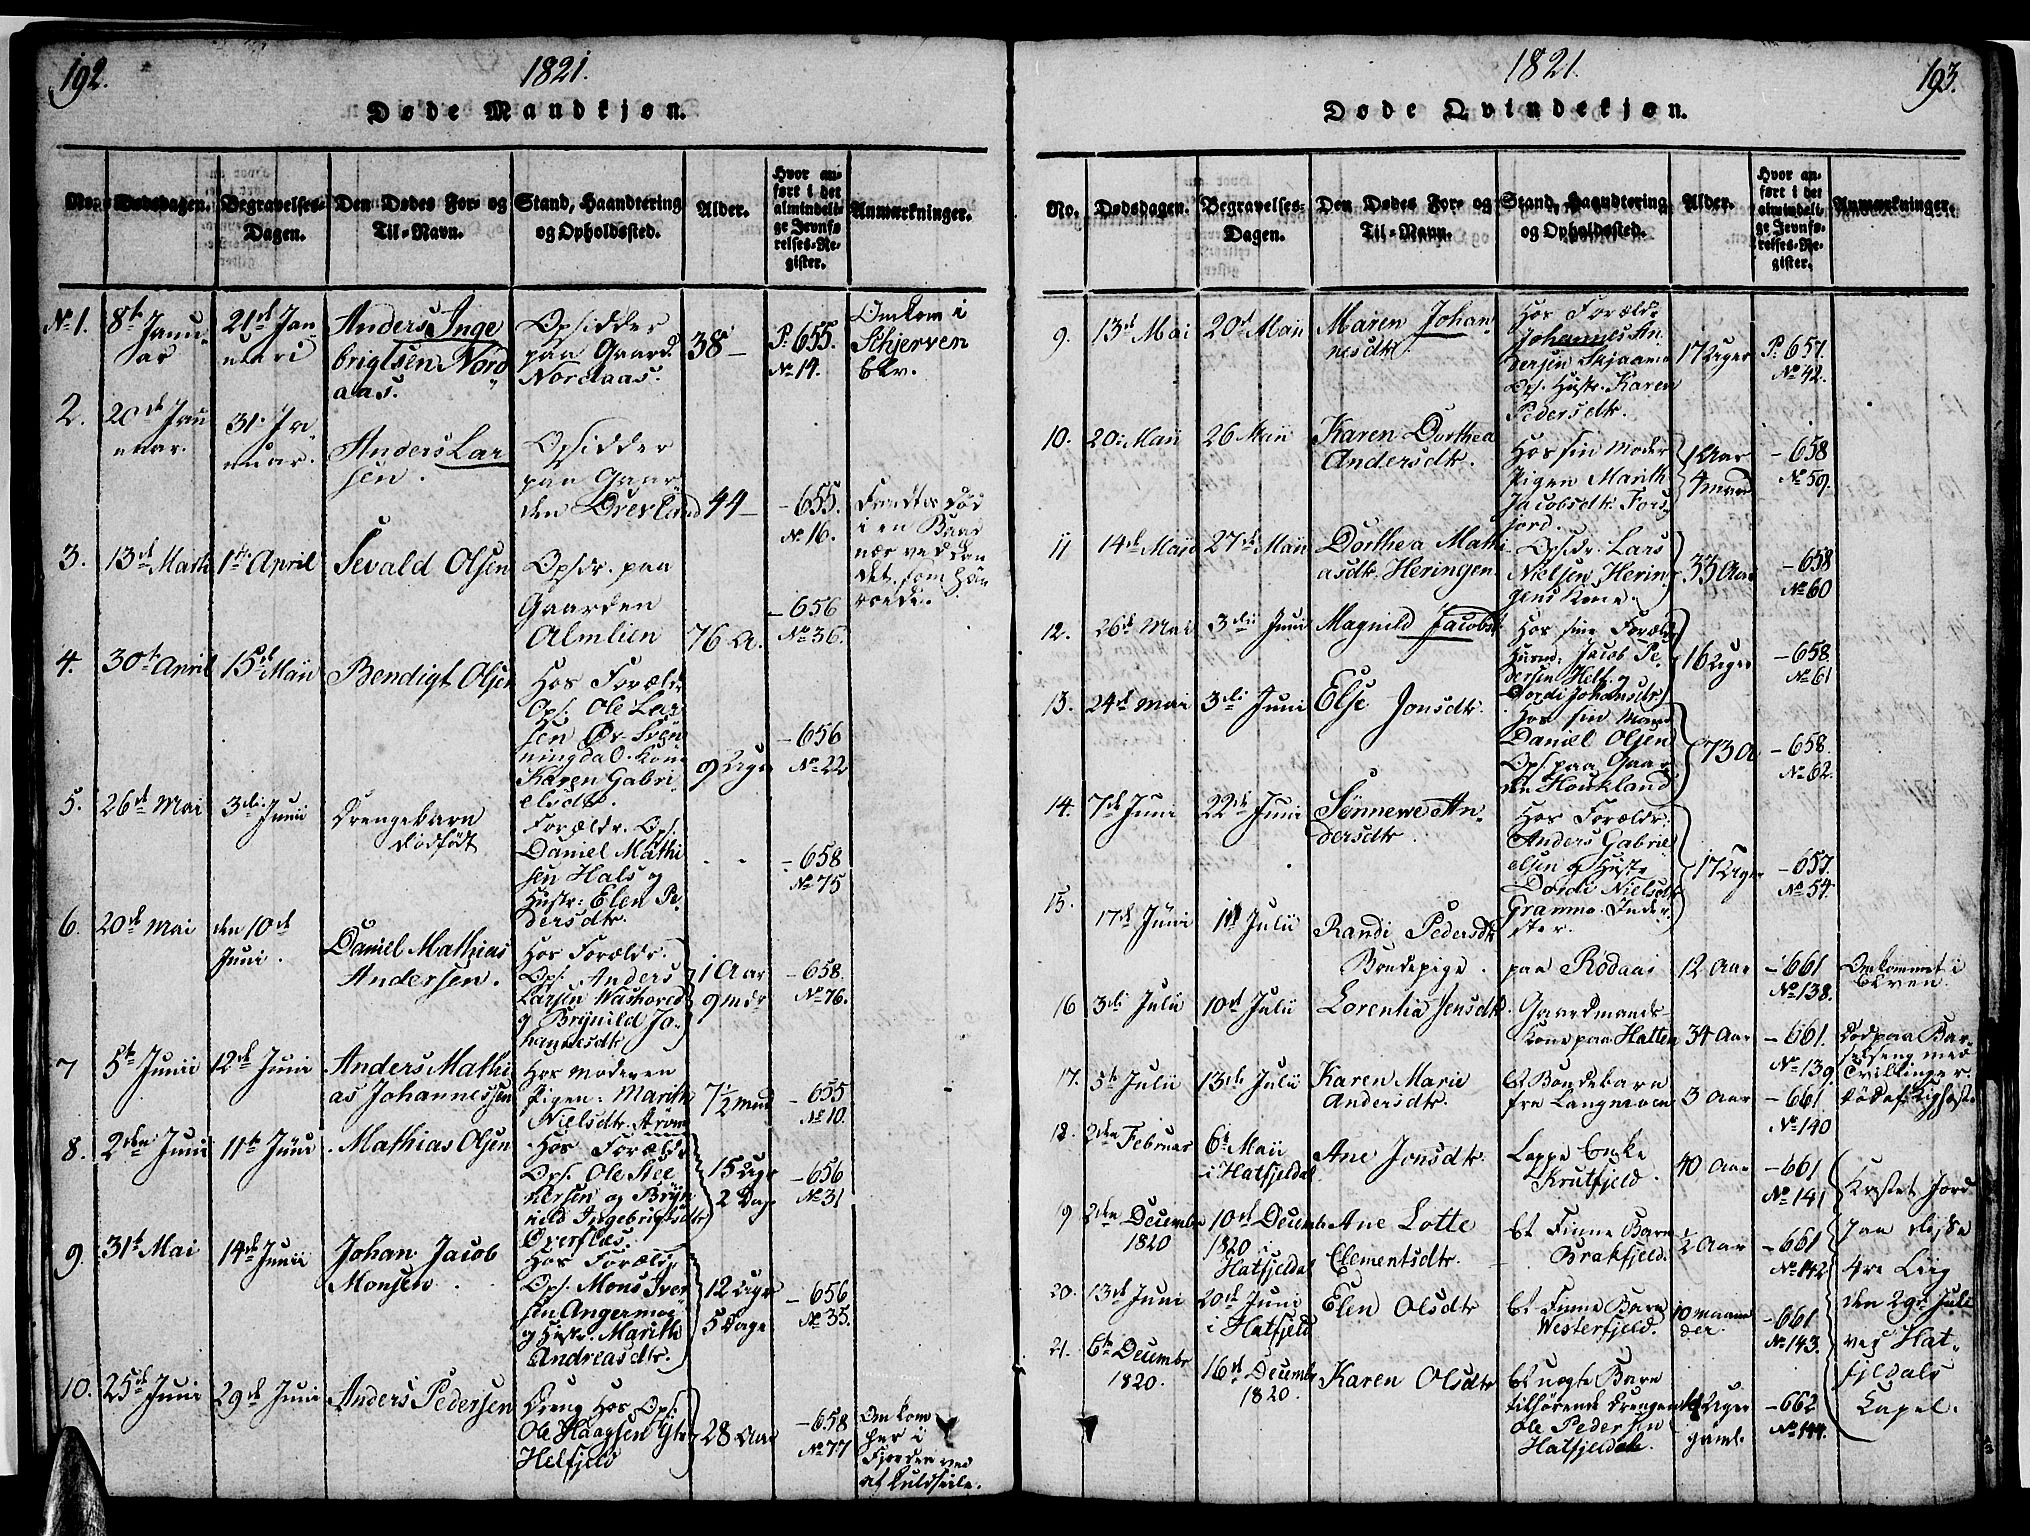 192.
1821.
Døde Mandkjøn.
No.
Dødsdagen.
Begravelses-
Dagen.
Den Dødes For- og
Til-Navn.
Stand, Haandtering
og Opholdssted.
Alder.
Hvor an-
ført i det
almindeli-
ge Jevnfø-
relses-Re-
gister.
Anmærkninger.
No 1.
8de Janu-
ar
21de Jan-
uari
Anders Inge
brigtsen Nord
aas.
Opsidder
paa Gaard.
Nordaas.
38 –
P. 655.
No 14.
Omkom i
Schjerven
Elv.
2.
20de Jan
uar.
31. Ja
nuar.
Anders Lar
sen.
Opsidder
paa Gaar
den Drevland
44 –
– 655.
No 16.
Fandtes død
i en Baad
nær ved Lan
det, som
3.
13de Marti
1ste April
Sevald Olsen
Opsdr. paa
Gaarden
Almlien
76 A.
– 656
No 36.
4.
30te April
15de Maii
Bendigt Olsen
Hos Forældr.
Ops. Ole Lar
sen Øv. Sven
ningdal. Kone
Karen Gabri
elsdtr.
9 Uger
– 656
No 22
5.
26de Mai
3die Junii
Drengebarn
dødfødt
Forældr. Ops.
Daniel Mathi
sen Hals og
Hustr: Elen Pe
dersdtr.
– 658
No 75
6.
20de Mai
den 10de
Juni.
Daniel Mathias
Andersen.
Hos Forældr.
Ops. Anders
Larsen
og Brynild Jo-
hannesdtr
1 Aar
9 mdr
– 658.
No 76.
7
5te Junii
12de Juni
Anders Mathi
as Johannessen
Hos Moderen
Pigen: Marith
Nielsdtr. Strøm
7½ mnd
– 655
No 10.
8.
2den Juni
11te Juni
Mathias Olsen
Hos Forældr.
Ops. Ole Stee
nersen og Bryn
nild Ingebrigtsdtr
15 Uger
2 Dage
– 656
No 31
9.
31te Mai
14de Junii
Johan Jacob
Monsen.
Hos Forældr
Ops. Mons Iver
sen Angermo
og Hustr. Marith
Andreasdtr.
12 Uger
5 Dage
– 656
No 35.
10.
25de Juni
29de Juni
Anders Pedersen
Dreng Hos Ops.
Ole Haagsen Ytr
Helfjeld
28 Aar
– 658
No 77
Omkom
her i
Fjorden ved
at Kuldseile.
193.
1821.
Døde Qvindekjøn.
No.
Dødsdagen.
Begravelses-
Dagen.
Den Dødes For- og
Til-Navn.
Stand, Haandtering
og Opholdssted.
Alder.
Hvor an-
ført i det
almindeli-
ge Jevnfø-
relses-Re-
gister.
Anmærkninger.
9.
13de Mai
20de Maii
Maren Johan
nesdtr.
Hos Forældr.
Johannes An
dersen
Ops. Hustr. Karen
Pedersdtr.
17 Uger
P. 657.
No 42.
10.
20. Maii
26 Maii
Karen Dorthea
Andersdtr.
Hos sin Moder
Pigen Marith
Jacobsdtr. Fors
jord.
1 Aar
4 mnd
– 658
No 59.
11
14de Maii
27de Maii
Dorthea Mathi
asdtr. Heringen
Opsdr. Lars
Nielsen Herin
gens Kone.
33 Aar
– 658
No 60
12.
26de Mai
3die Juni
Magnild Jacobsd
Hos sine Forældr
Jacob Pe
dersen Helf. og
Dordi Johansdtr
16 Uger
– 658.
No 61
13.
24de Mai
3die Juni
Else Jonsdtr
Hos sin Mand
Daniel Olsen
Ops. paa Gaar
den Houkland
73 A
– 658.
No 62.
14.
7de Juni
22de Juni
Sønnewe An-
dersdtr
Hos Forældr.
Anders Gabrie
elsen og Hustr
Dordi Nielsdtr
Gramma. Inder-
ster.
17 Uger
– 657.
No 54.
15.
17de Juni
1ste Julii
Randi Pedersdtr
Bondepige.
paa Rødaas
12 Aar
– 661
No 138.
Omkommet i
Elven.
16
3die Julii
10de Julii
Lorentia Jensdtr
Gaardmands-
Kone paa Hatten
34 Aar
– 661.
No 139
Død paa Bar
selseng med
Tvillinger
17.
5te Julii
13de Julii
Karen Marie
Andersdtr.
Et Bondebarn
fra Langmoen
3 Aar
– 661
No 140
18.
2den Februar
6te Maii
i Hatfjeldal
Ane Jonsdtr
Lappe Enke
Krutfjeld.
40 Aar
– 661
No 141
Kastet Jord
paa disse
4re Liig
den 29de Juli
ved Hat-
fjeldals
Capel.
19
2den Decembr
1820
10de Decembr
1820 i
Hatfjeldal
Ane Lotte
Clementsdtr.
Et Finne Barn
Brakfjeld.
½ Aar
– 661
No 142
20.
13de Juni
20de Juni
i Hatfjeld
Elen Olsdtr
Et Finne Barn
Westerfjeld.
10 maane
der.
– 661
No 143.
21.
6te Decembr
1820.
16de Decembr
1820.
Karen Olsdtr
Et uægte Barn
tilhørende Drengen
Ole Pedersen
Hatfjeldale.
Uger
gaml.
– 662
No 144.